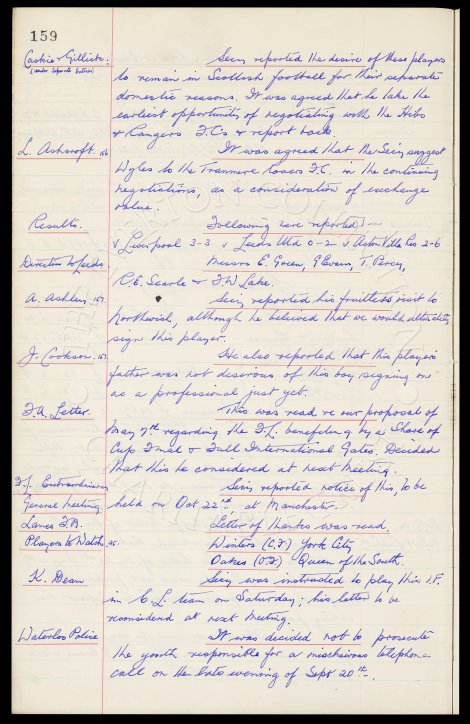 159
Caskie & Gillick: Secy reported the desire of these players
(under separate Entries)
to remain in Scottish football for their separate
domestic reasons. It was agreed that he take the
earliest opportunity of negotiating with the Hibs
& Rangers F.Cs & report back.
L. Ashcroft. 156 It was agreed that the Secy suggest
Wyles to the Tranmere Rovers F.C. in the continuing
negotiations, as a consideration of exchange
value.
Results. Following were reported:-
v Liverpool 3-3 v Leeds Utd 0-2 v Aston Villa Res 2-6
Directors to Leeds. Messrs E. Green, J Evans, T. Percy,
R.E. Searle & F.W Lake.
A. Ashley 157. Secy reported his fruitless visit to
Northwich, although he believed that we would ultimately
sign this player.
J. Cookson. 157 He also reported that this player's
father was not desirous of this boy signing on
as a professional just yet.
F.A. Letter. This was read re our proposal of
May 7th regarding the F.L. benefiting by a Share of
Cup Final & Full International Gates. Decided
that this be considered at next meeting.
F.L. Extraordinary Secy reported notice of this, to be
General Meeting held on Oct 22nd, at Manchester.
Lancs F.A. Letter of thanks was read.
Players to Watch Winters (C.F.) York City
Oakes (O.F.) Queen of the South.
K. Dean Secy was instructed to play this I.F.
in C.L. team on Saturday; his letter to be
reconsidered at next meeting.
Waterloo Police It was decided not to prosecute
the youth responsible for a mischievous telephone
call on the late evening of Sept 20th.